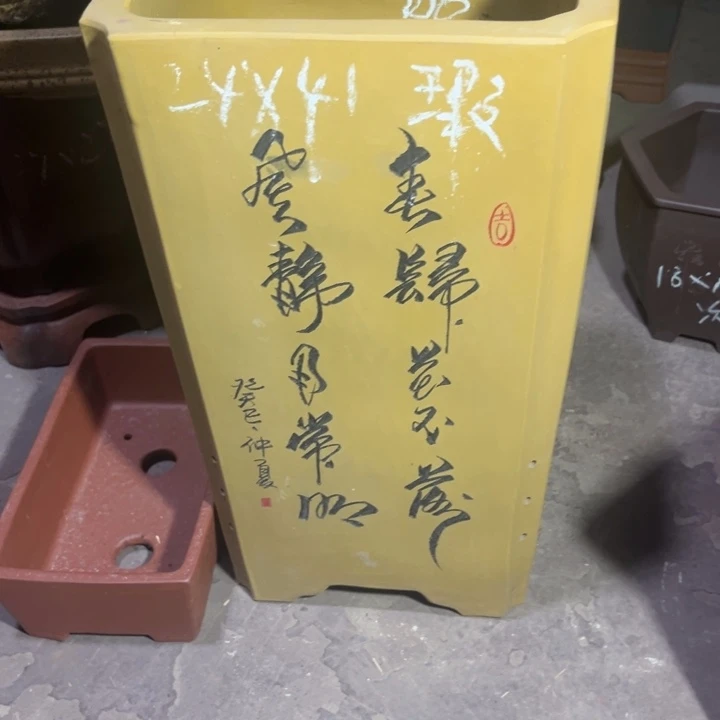 24X41
春歸花不落
風静月常明
癸巳·仲夏
18X